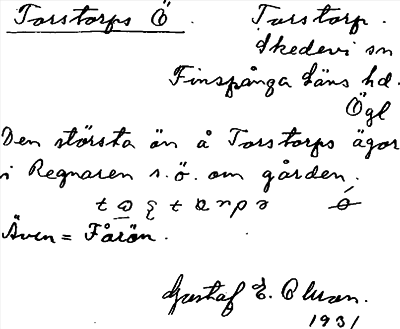 Torstorps Ö. Torstorp.
Skedevi sn
Finspånga läns hd.
Ögl
Den största ön å Torstorps ägor
i Regnaren s.ö. om gården.
Även = Fårön.
Gustaf E. Olson.
1931